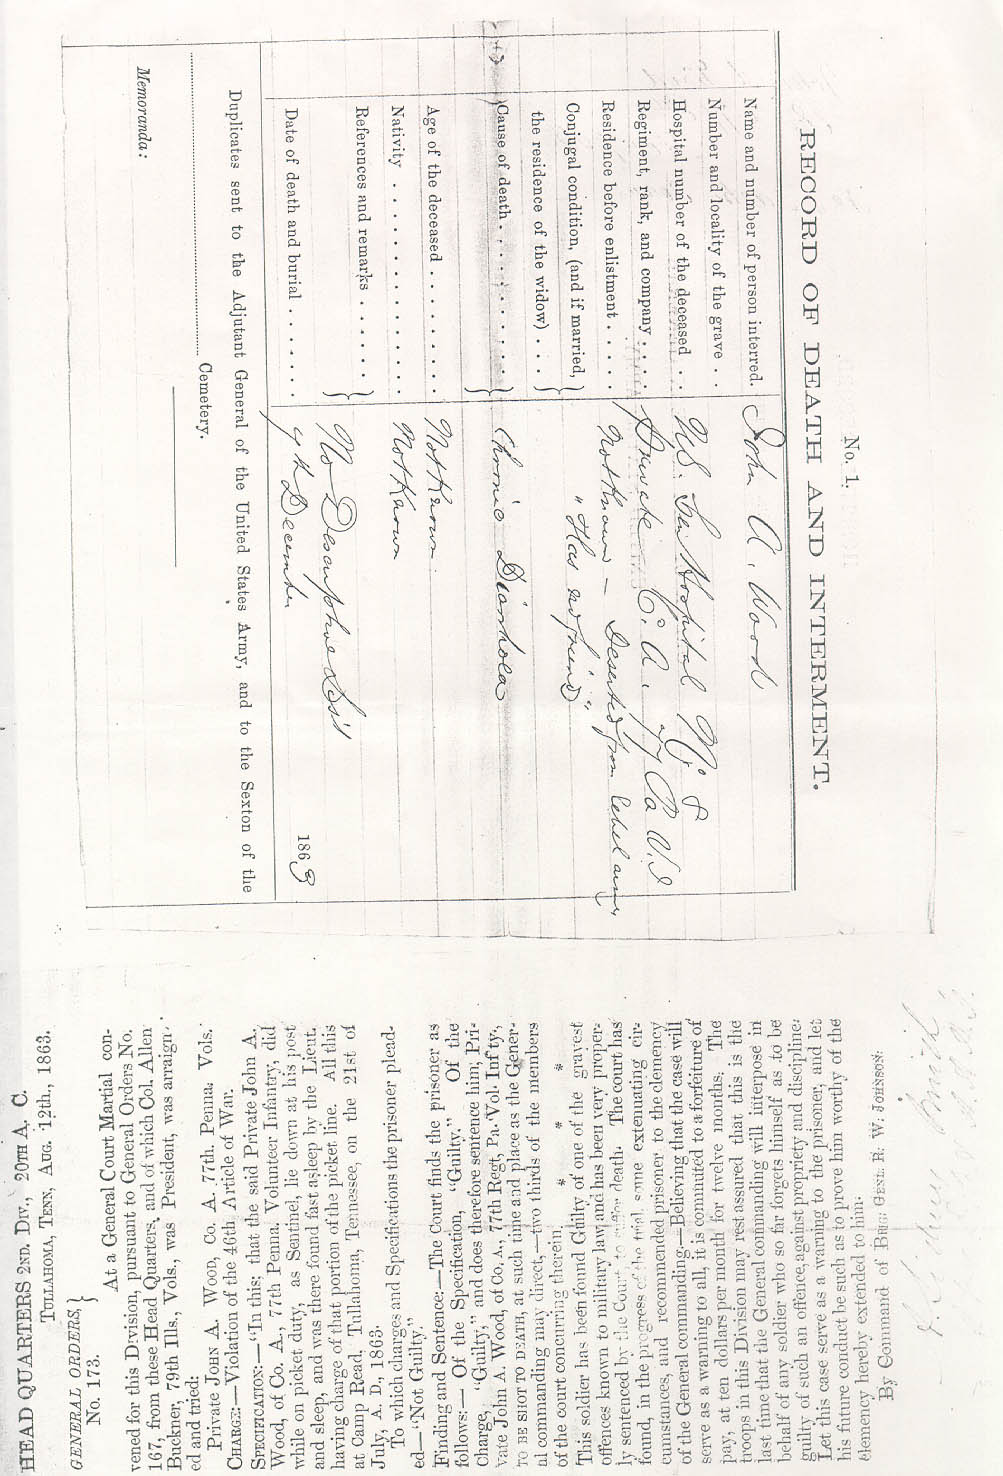 No. 1.
RECORD OF DEATH AND INTERMENT.
Name and number of person interred. John A. Wood
Number and locality of the grave . .
Hospital number of the deceased . . U.S. Gen Hospital No 8
Regiment, rank, and company . . . . Private C. A. 77 Pa V.I
Residence before enlistment . . . . . Not Known — Deserted from rebel army
Conjugal condition, (and if married, } "Has no friends"
the residence of the widow) . . . }
Cause of death . . . . . . . . . } Chronic Diarrhoea
Age of the deceased . . . . . . . . Not Known
Nativity . . . . . . . . . . . . Not Known
References and remarks . . . . . . } No Descriptive List
Date of death and burial . . . . . . 7th December 1863
Duplicates sent to the Adjutant General of the United States Army, and to the Sexton of the
Cemetery.
Memoranda:
HEAD QUARTERS 2ND. DIV., 20TH A. C.
TULLAHOMA, TENN, AUG. 12th., 1863.
GENERAL ORDERS, }
No. 173. }
At a General Court Martial con-
vened for this Division, pursuant to General Orders No.
167, from these Head Quarters, and of which Col. Allen
Buckner, 79th Ills., Vols., was President, was arraign-
ed and tried:
Private JOHN A. WOOD, Co. A. 77th. Penna. Vols.
CHARGE:—Violation of the 46th. Article of War.
SPECIFICATION:—"In this; that the said Private John A.
Wood, of Co. A., 77th Penna. Volunteer Infantry, did
while on picket duty, as Sentinel, lie down at his post
and sleep, and was there found fast asleep by the Lieut.
having charge of that portion of the picket line. All this
at Camp Read, Tullahoma, Tennessee, on the 21st of
July, A. D., 1863.
To which charges and Specifications the prisoner plead-
ed—"Not Guilty."
Finding and Sentence:—The Court finds the prisoner as
follows:— Of the Specification, "Guilty." Of the
Charge, "Guilty," and does therefore sentence him, Pri-
vate John A. Wood, of Co. A., 77th Regt, Pa. Vol. Inf'ty,
TO BE SHOT TO DEATH, at such time and place as the Gener-
al commanding may direct,—two thirds of the members
of the court concurring therein.
* * * *
This soldier has been found Guilty of one of the gravest
offences known to military law, and has been very proper-
ly sentenced by the Court to suffer death. The court has
found, in the progress of the trial, some extenuating cir-
cumstances, and recommended prisoner to the clemency
of the General commanding.—Believing that the case will
serve as a warning to all, it is commuted to a forfeiture of
pay, at ten dollars per month for twelve months. The
troops in this Division may rest assured that this is the
last time that the General commanding will interpose in
behalf of any soldier who so far forgets himself as to be
guilty of such an offence, against propriety and discipline.
Let this case serve as a warning to the prisoner, and let
his future conduct be such as to prove him worthy of the
clemency hereby extended to him.
By Command of BRIG: GENL. R. W. JOHNSON: